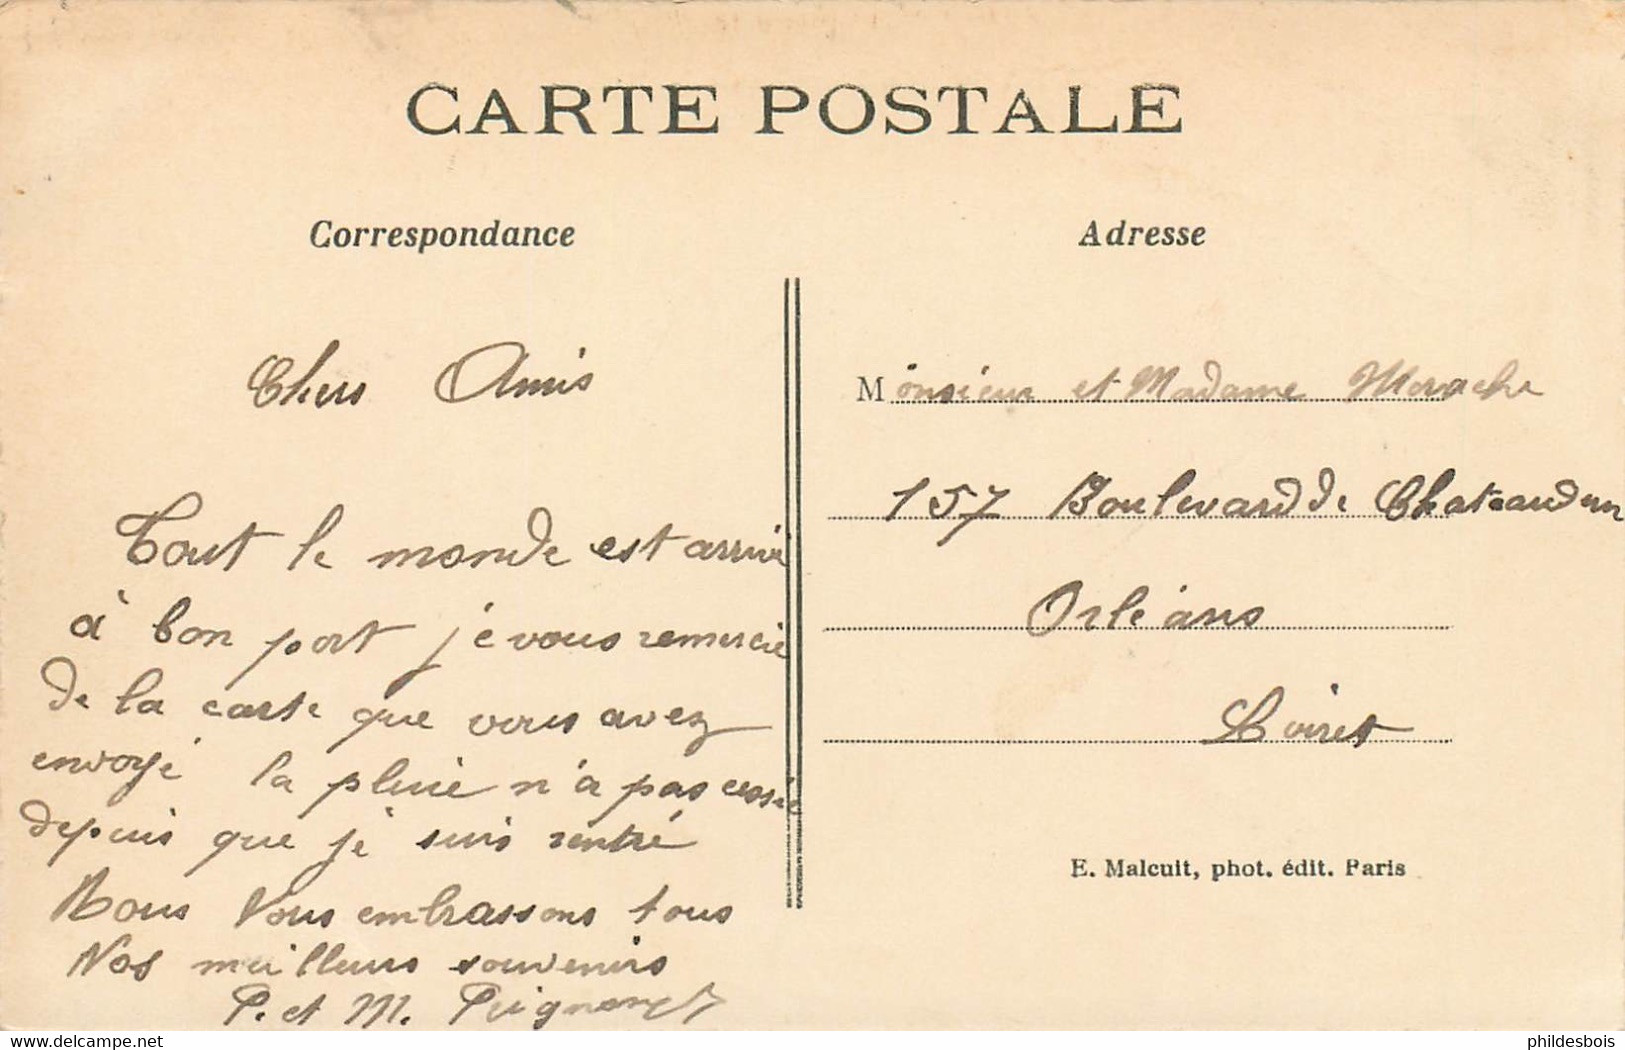 CARTE POSTALE
Correspondance
Adresse
Chers Amis
Tout le monde est arrivé
à bon port je vous remercie
de la carte que vous avez
envoyé la pluie n'a pas cessée
depuis que je suis rentré
Nous Vous embrassons tous
Nos meilleurs souvenirs
P. et M.
Monsieur et Madame
157 Boulevard de Chateaudun
Orléans
Loiret
E. Malcuit, phot. édit. Paris
delcampe.net
phildesbois